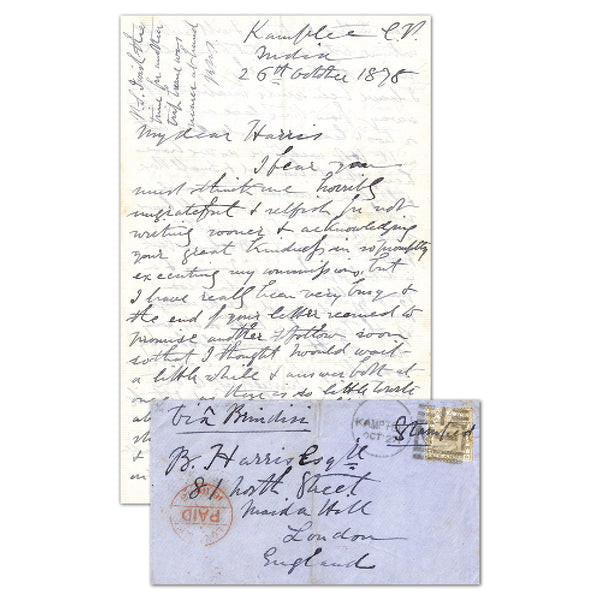 Kamptee C.P.
India
26th October 1878
P.S. I will
time for another
My dear Harris
I fear you
must think me horribly
ungrateful & selfish for not
writing sooner & acknowledging
your great kindness in so promptly
executing my commissions, but
I have really been very busy &
the end of your letter seemed to
promise another to follow soon
so that I thought I would wait
a little while & answer both at
once, as there is so little
via Brindisi
KAMPTEE
OCT 2
Stamped
B. Harris Esqre
81 North Street
Maida Hill
London
England
PAID